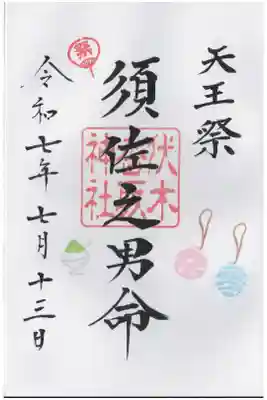 天王祭
須佐之男命
令和七年七月十三日
祭